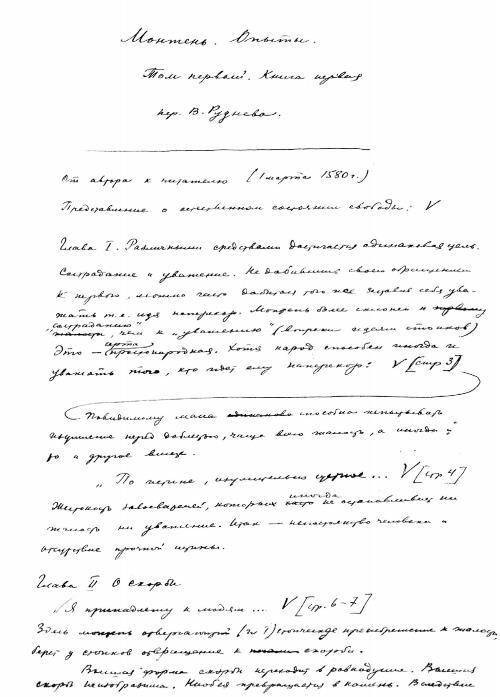 Монтень. Опыты.
Том первый. Книга первая
пер. В. Руднева.
От автора к читателю (1 марта 1580 г.)
Представление о естественном состоянии свободы: V
Глава I. Различными средствами достигается одинаковая цель.
Сострадание и уважение. Не добившись своим обращением
к первого, можно часто добиться того же заставив себя ува-
жать т.е. идя наперекор. Монтень более склонен к
"состраданию", чем к "уважению" (вопреки идеям стоиков)
Это — черта простонародная. Хотя народ способен иногда и
уважать того, кто идет ему наперекор: V [стр 3]
Повидимому масса способна испытывать
изумление перед доблестью, чаще всего жалость, а иногда и
то и другое вместе.
"По истине, изумительно суетное... V [стр 4]
Жестокость завоевателей, которых иногда не останавливает ни
жалость ни уважение. Итак — непостоянство человека и
отсутствие прочной истины.
Глава II О скорби
"Я принадлежу к людям... V [стр. 6-7]
Здесь отвергнутый (гл 1) стоическое пренебрежение к жалости,
берет у стоиков отвращение к скорби.
Высшая форма скорби переходит в равнодушие. Высшая
скорбь неизобразима. Ниобея превращается в камень. Вследствие